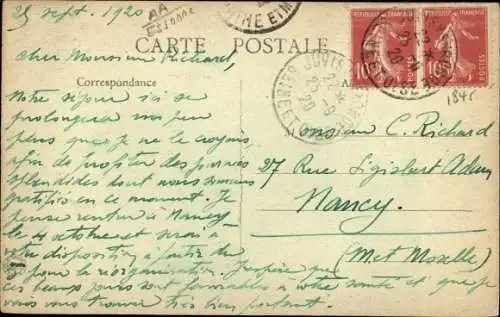 21 sept. 1920
AA
ESSONNE
CARTE POSTALE
Correspondance
Cher Monsieur Richard,
Notre séjour ici se
prolongera un peu
plus que je ne le croyais,
afin de profiter des journées
splendides dont nous sommes
gratifiés en ce moment. Je
pense rentrer à Nancy
le 4 octobre et serai à
votre disposition à partir du
pour la réorganisation. J'espère que
ces beaux jours sont favorables à votre santé et que je
vais vous trouver très bien portant.
JUVISY
SEINE ET OISE
22 - 9
20
10
10
184c
Monsieur C. Richard
27 Rue Sigisbert Adam
Nancy.
(Met Moselle)